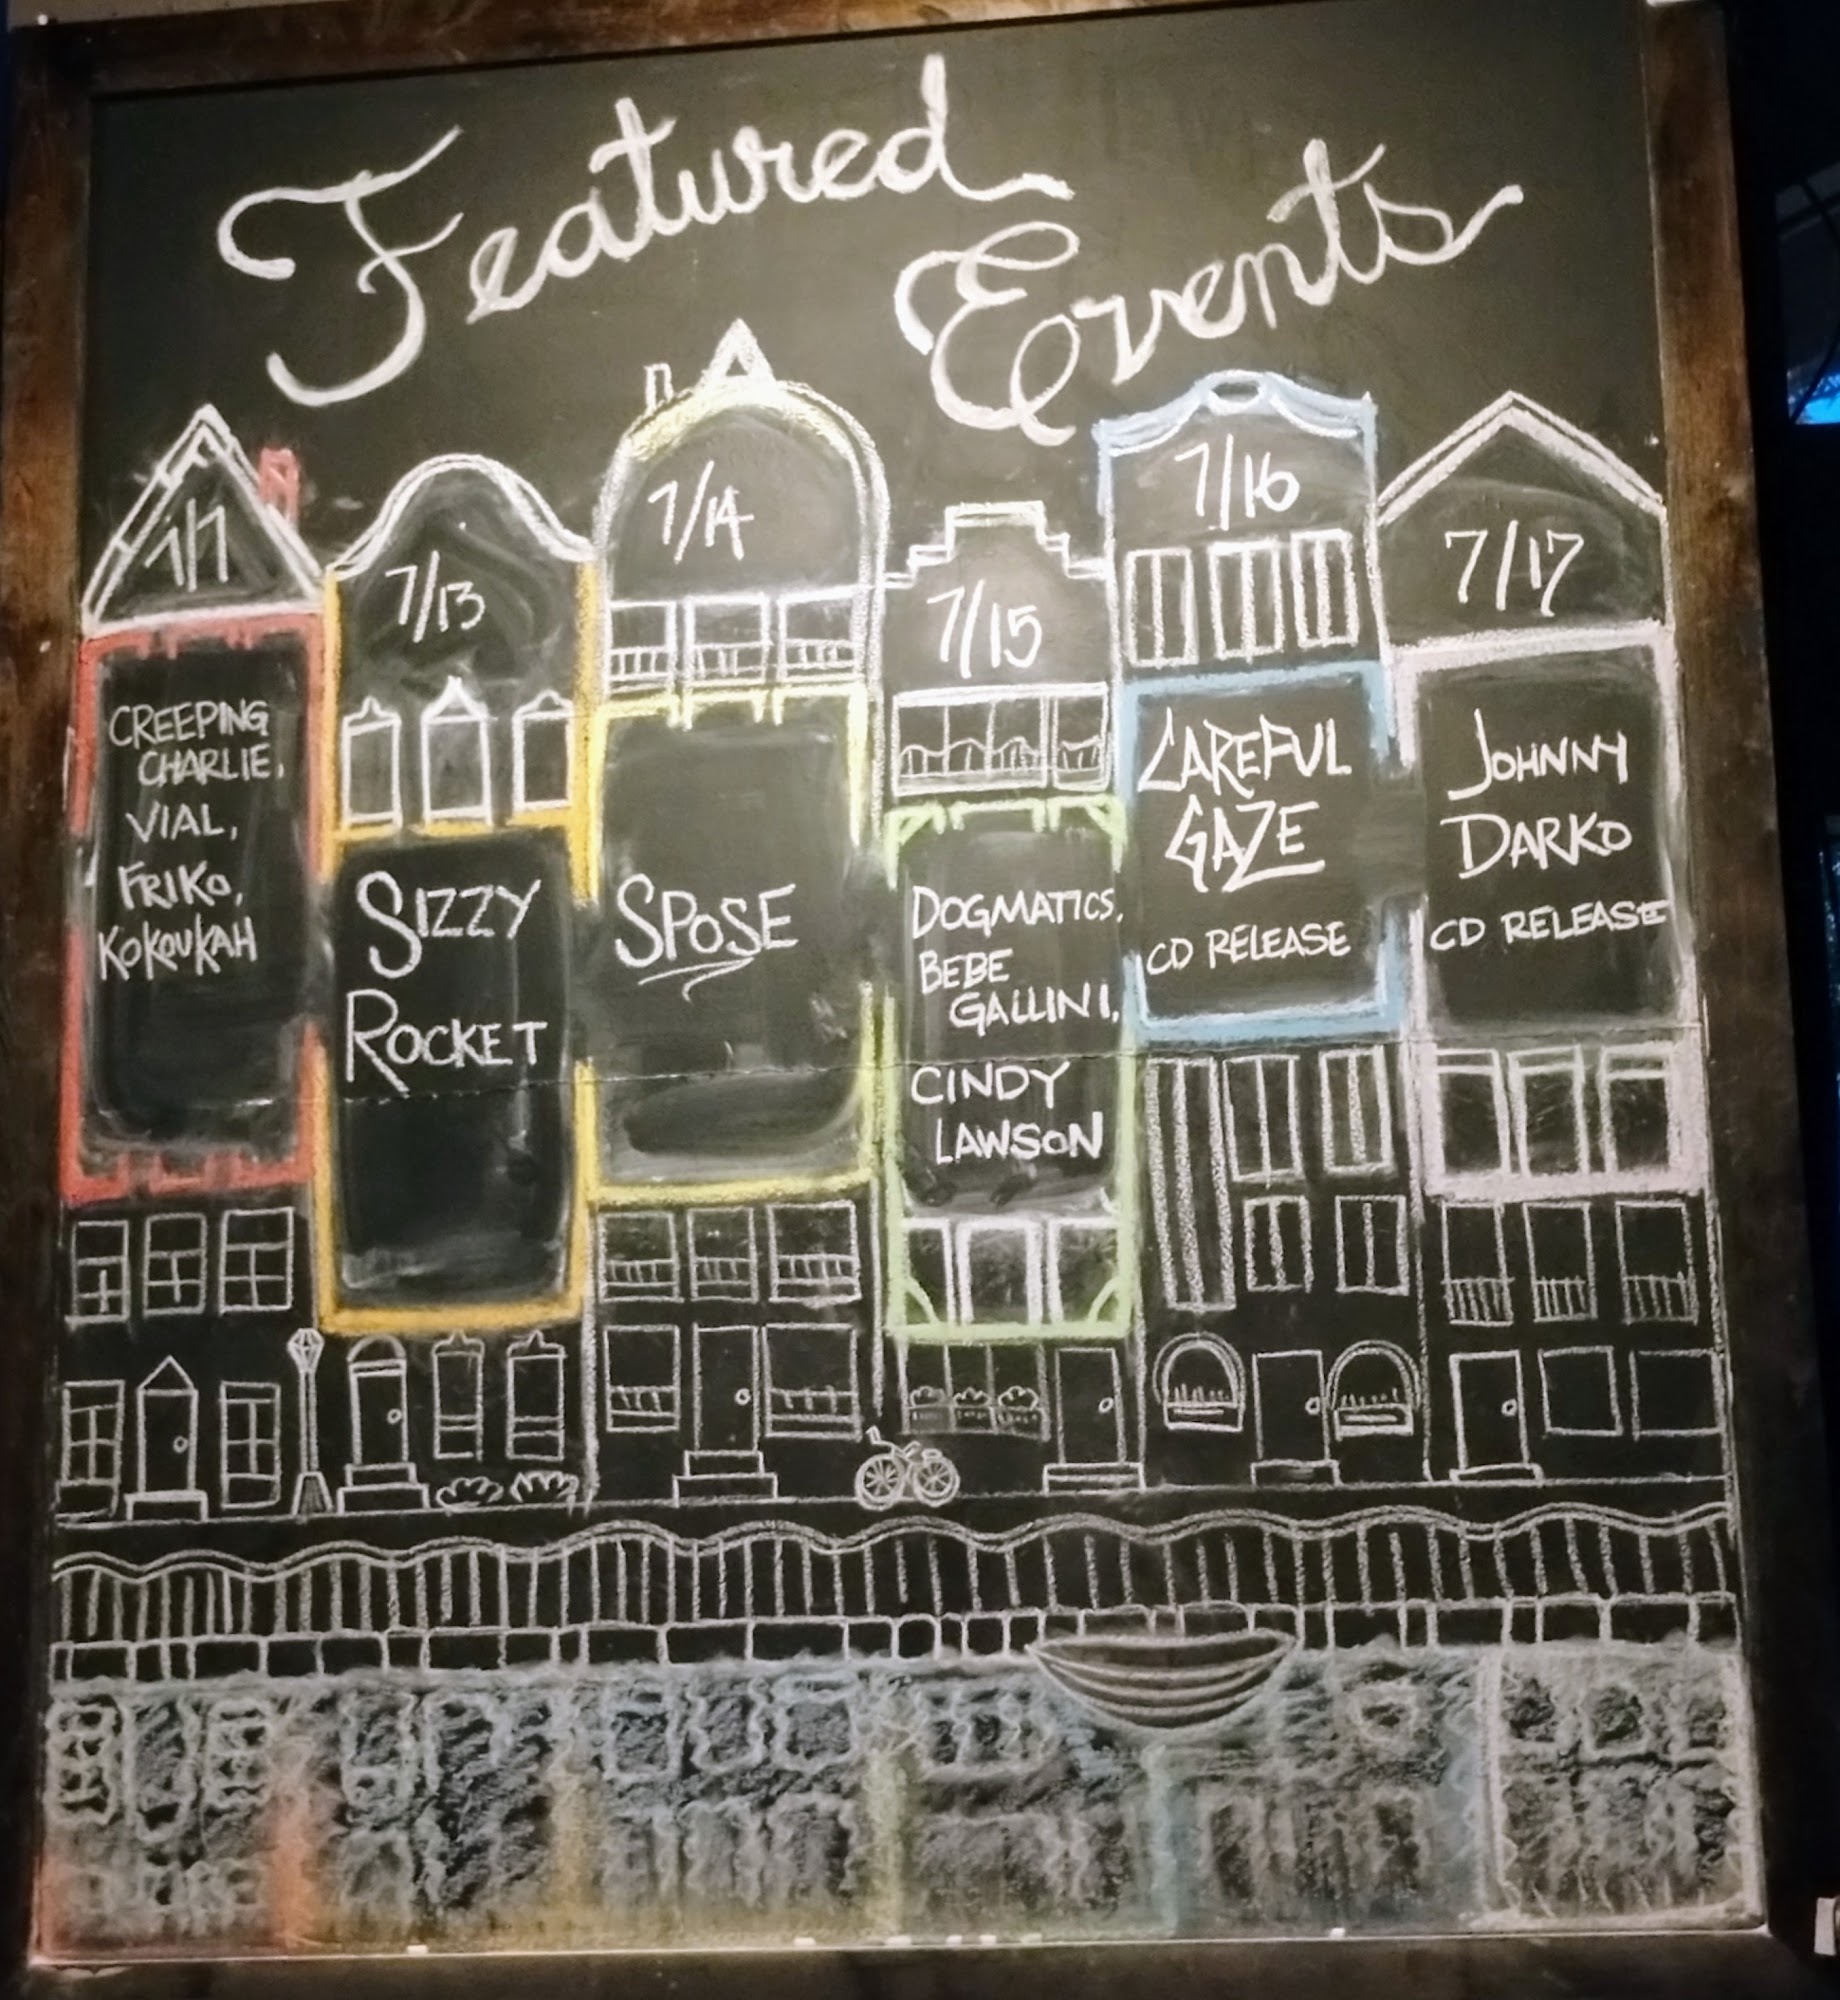 Featured
Events
7/7
CREEPING
CHARLIE,
VIAL,
FRIKO,
KOKOUKAH
7/13
SIZZY
ROCKET
7/14
SPOSE
7/15
DOGMATICS,
BEBE
GALLINI,
CINDY
LAWSON
7/16
CAREFUL
GAZE
CD RELEASE
7/17
JOHNNY
DARKO
CD RELEASE